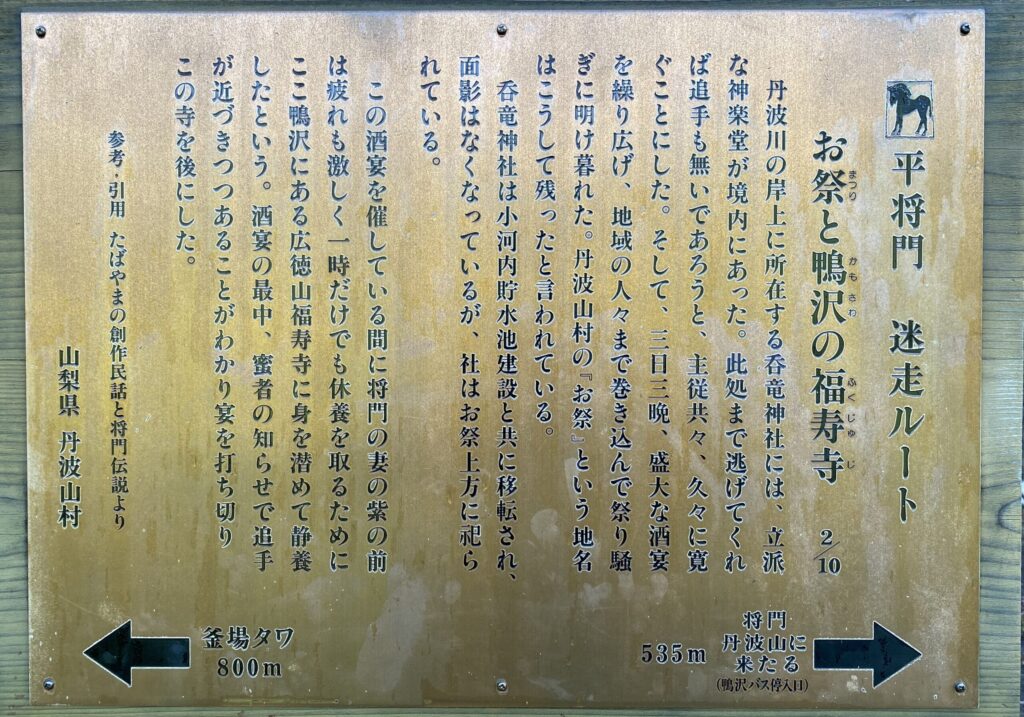 平将門 迷走ルート
お祭と鴨沢の福寿寺 2/10
まつり かもさわ ふくじゅじ
丹波川の岸上に所在する呑竜神社には、立派
な神楽堂が境内にあった。此処まで逃げてくれ
ば追手も無いであろうと、主従共々、久々に寛
ぐことにした。そして、三日三晩、盛大な酒宴
を繰り広げ、地域の人々まで巻き込んで祭り騒
ぎに明け暮れた。丹波山村の『お祭』という地名
はこうして残ったと言われている。
呑竜神社は小河内貯水池建設と共に移転され、
面影はなくなっているが、社はお祭上方に祀ら
れている。
この酒宴を催している間に将門の妻の紫の前
は疲れも激しく一時だけでも休養を取るために
ここ鴨沢にある広徳山福寿寺に身を潜めて静養
したという。酒宴の最中、蜜者の知らせで追手
が近づきつつあることがわかり宴を打ち切り
この寺を後にした。
参考・引用 たばやまの創作民話と将門伝説より
山梨県 丹波山村
将門
丹波山に
来たる
(鴨沢バス停入口)
535m
釜場タワ
800m